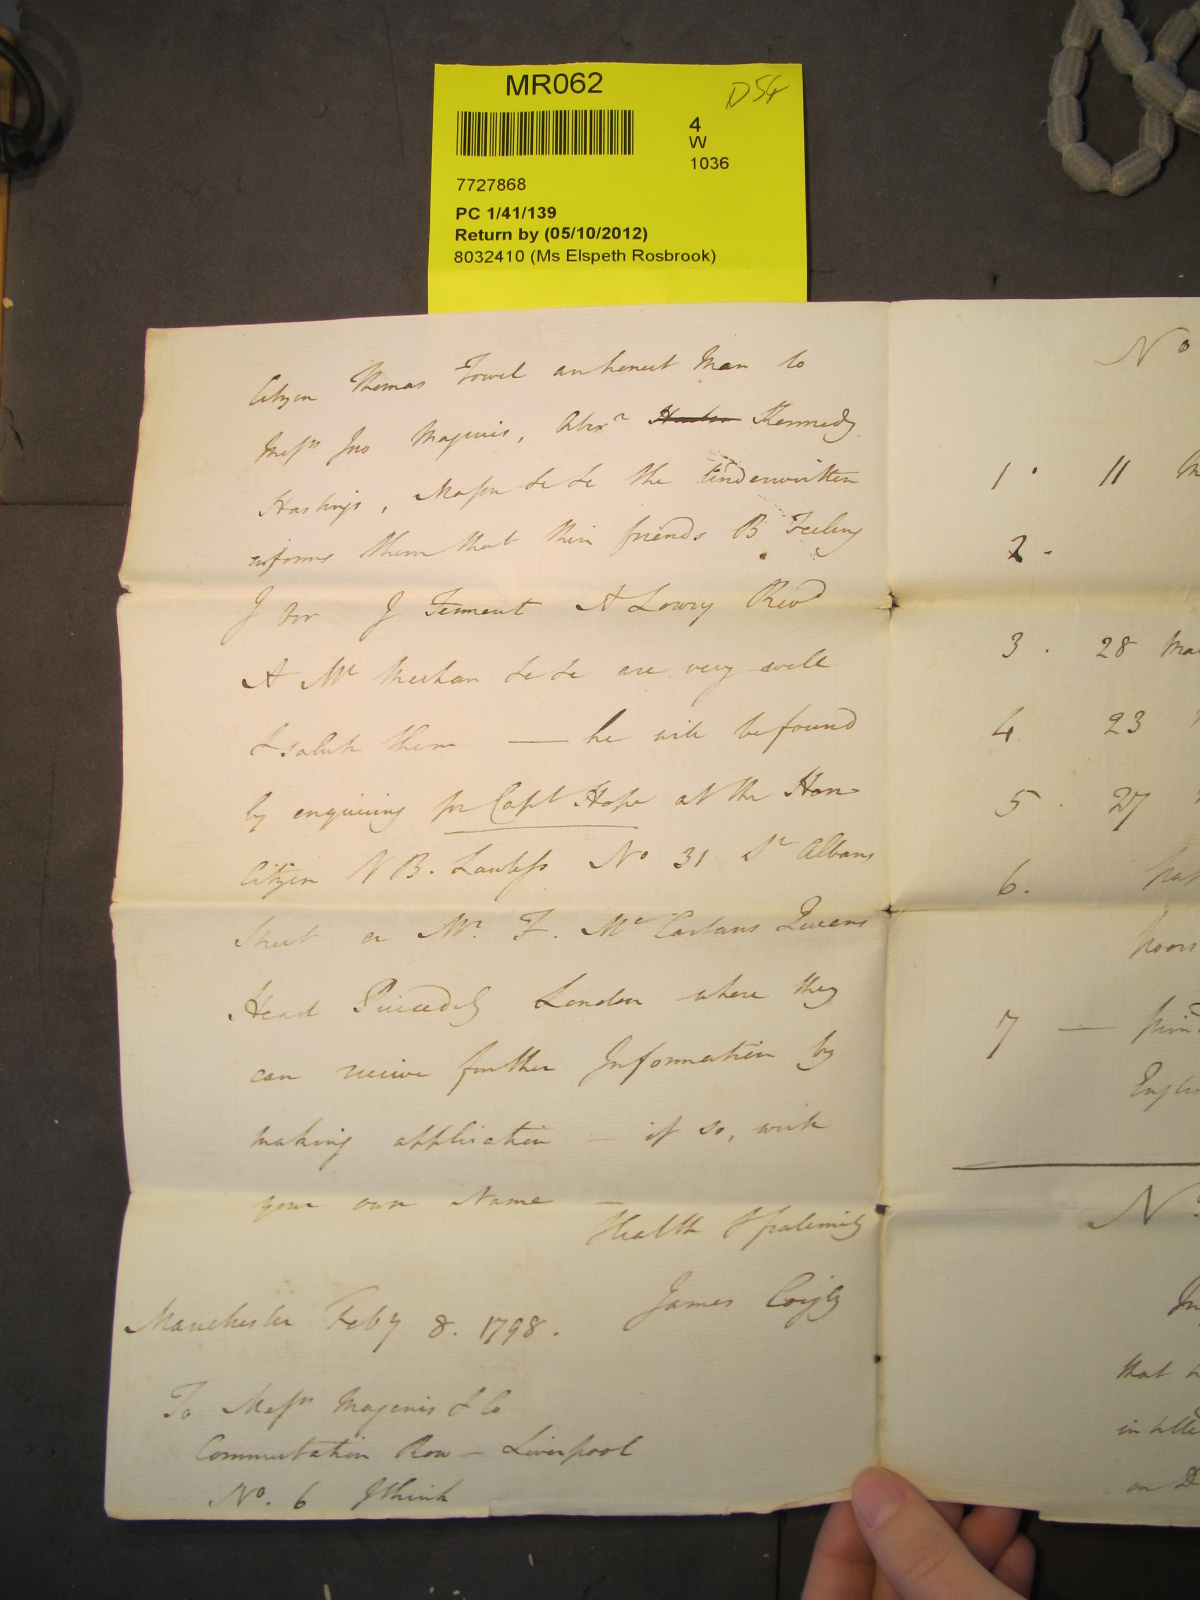 MR062
D54
4
W
1036
7727868
PC 1/41/139
Return by (05/10/2012)
8032410 (Ms Elspeth Rosbrook)
Citizen Thomas Towel an honest Man to
Messrs Jno Magenis, Alexr Kennedy
Hastings, Mason &c &c the Underwritten
informs them that their friends B Teeling
J Tennent A Lowry Revd
A Mc Mechan &c &c are very well
& salute them — he will be found
by enquiring for Capt Hope at the Hon
Citizen V B. Lawless No 31 St Albans
Street or Mr. F. Mc Cartans Queens
Head Piccadily London where they
can receive further Information by
making application — if so, with
your own Name —
Health & fraternity
James Coigly
Manchester Feby 8. 1798.
To Messrs Magenis & Co
Commutation Row — Liverpool
No. 6 I think
No
1. 11
2.
3. 28
4 23
5. 27
6.
7 —
No
that
on